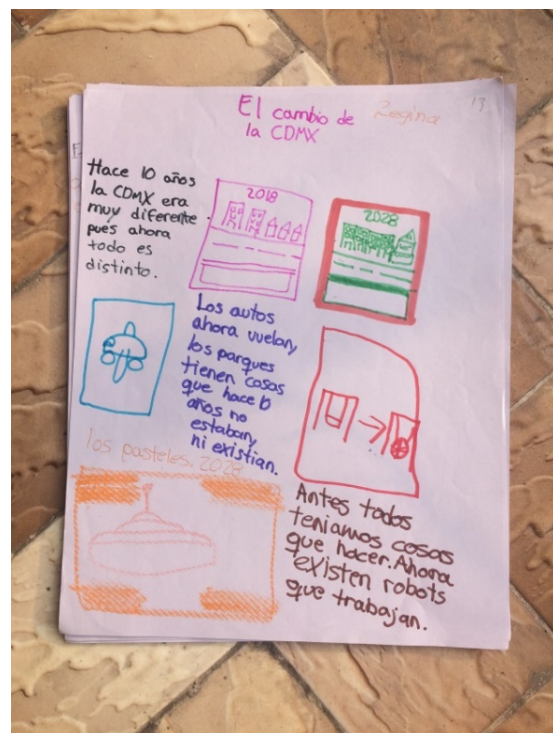 El cambio de
la CDMX
Regina
13
Hace 10 años
la CDMX era
muy diferente
pues ahora
todo es
distinto.
2018
2028
Los autos
ahora vuelan,
los parques
tienen cosas
que hace 10
años no
estaban,
ni existian.
los pasteles, 2028
Antes todos
teniamos cosas
que hacer. Ahora
existen robots
que trabajan.